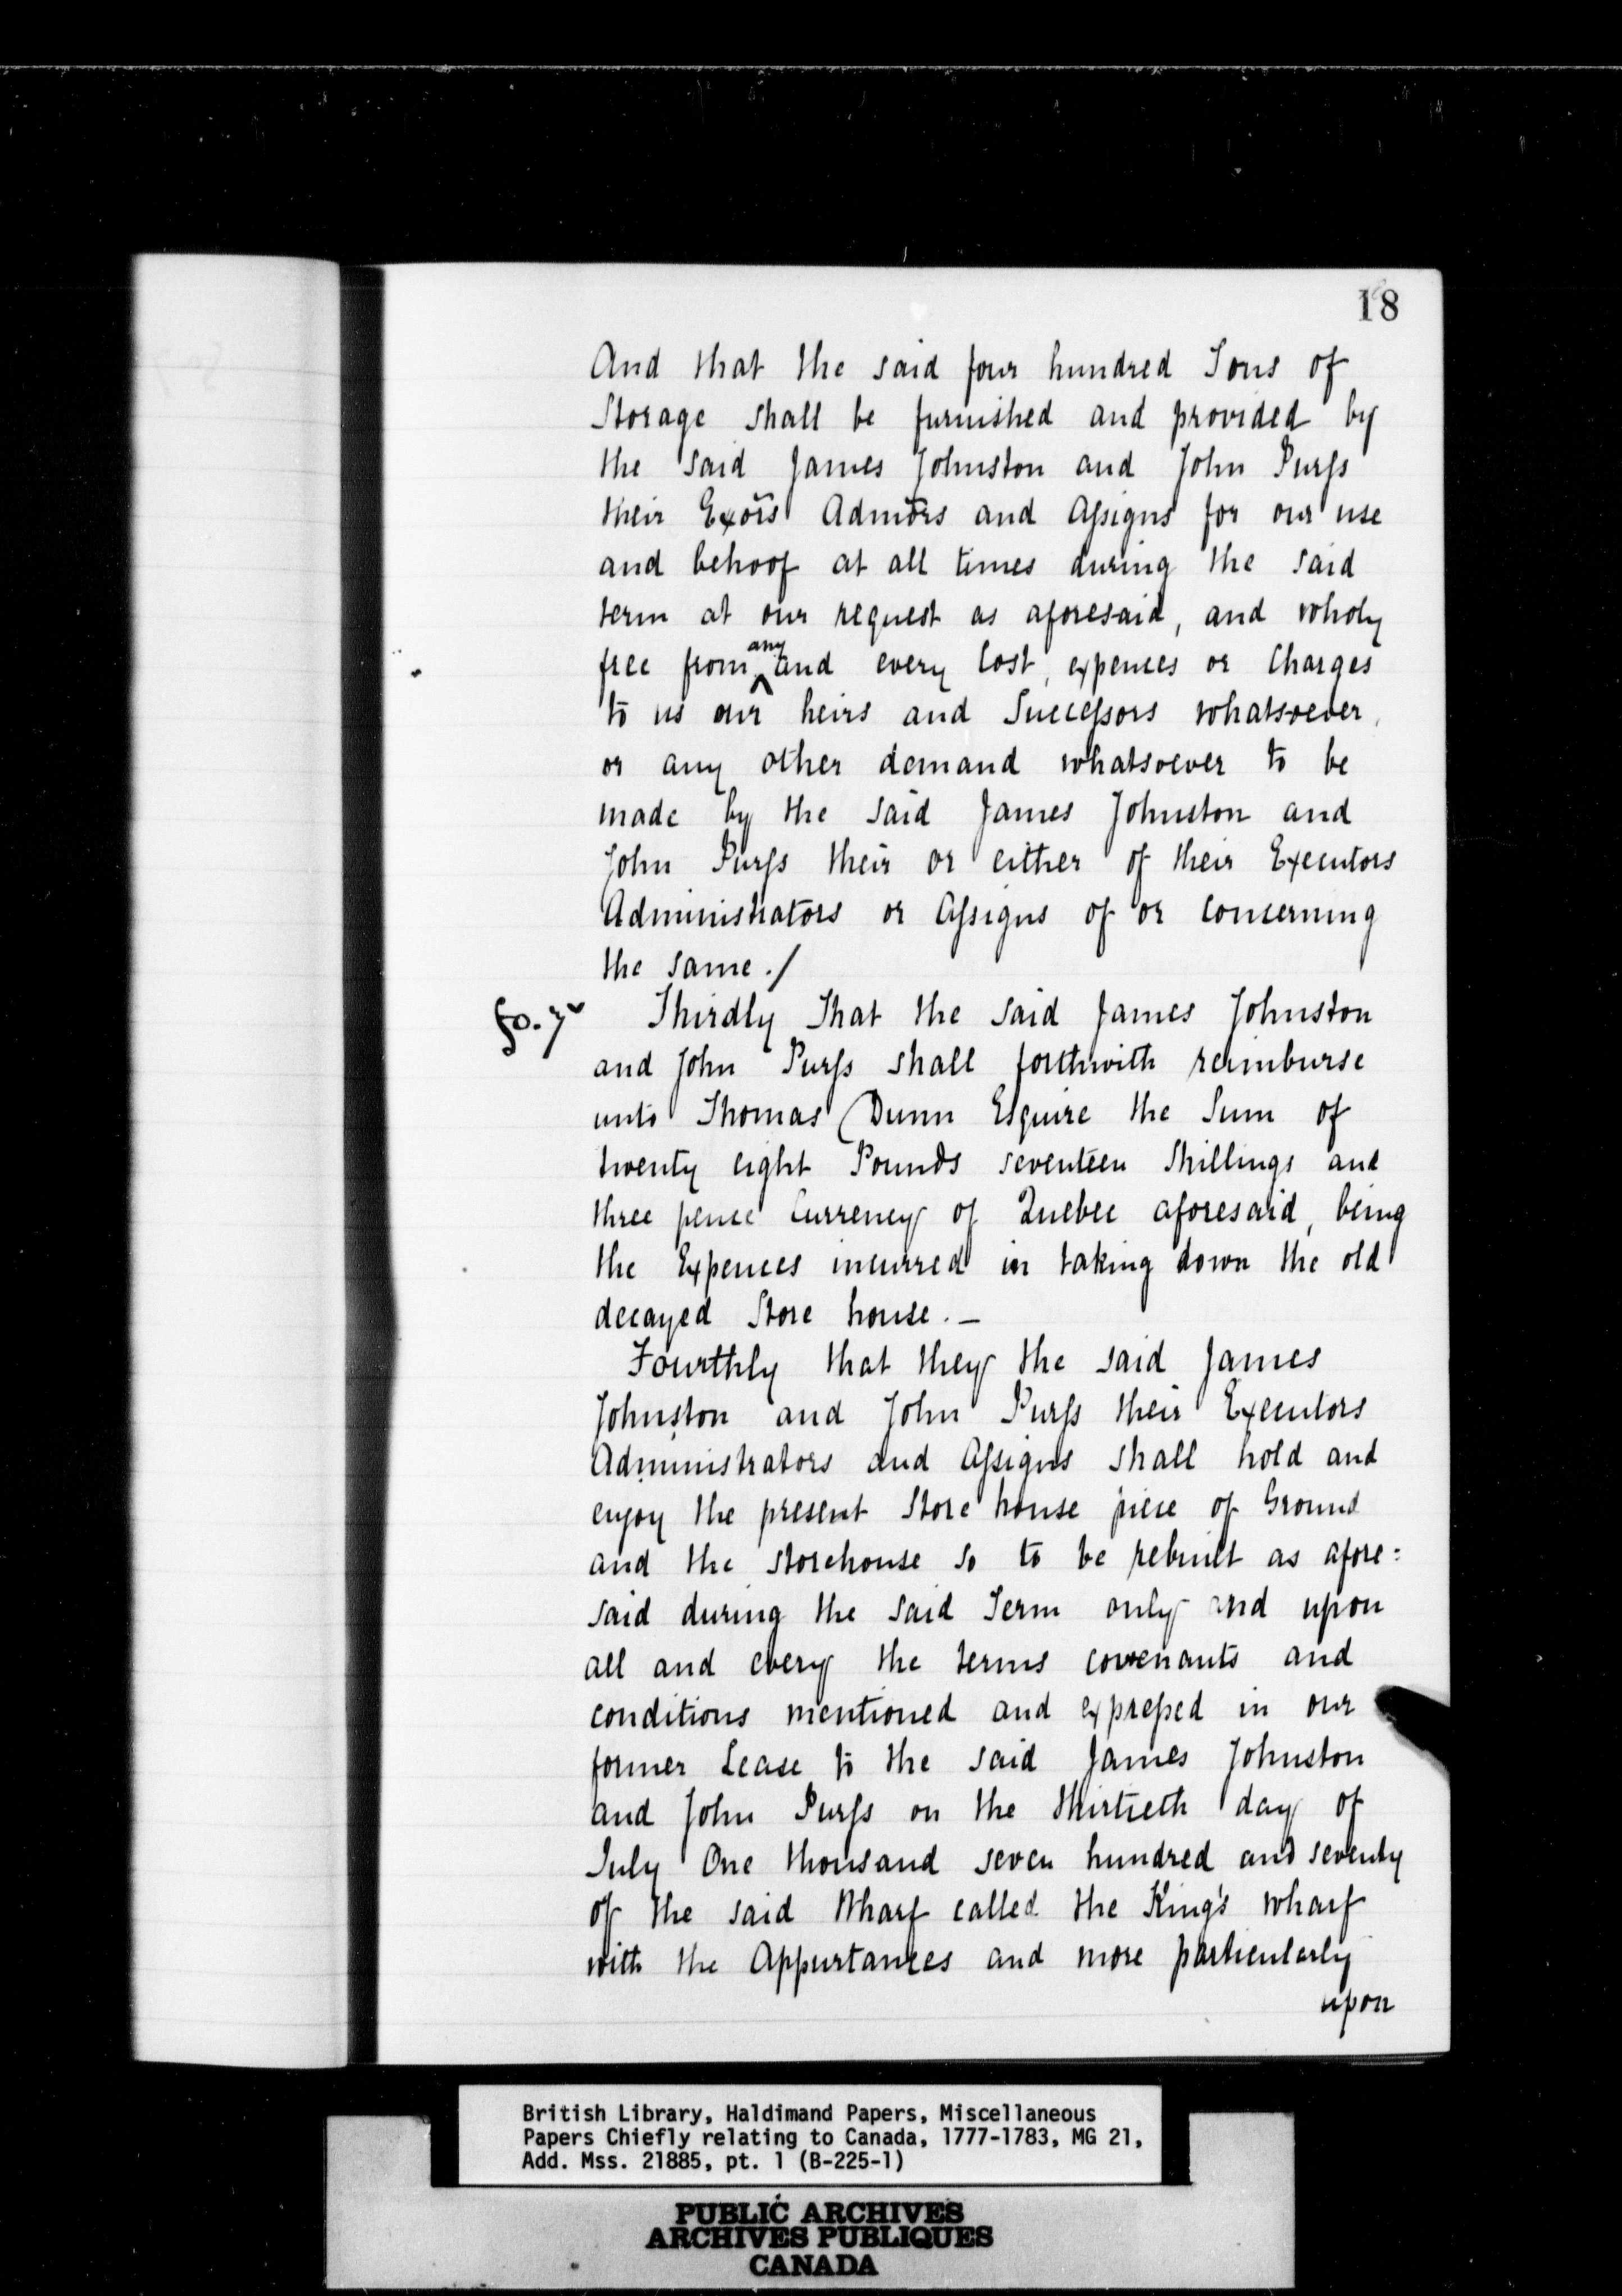 18
And that the said four hundred Tons of
Storage shall be furnished and provided by
the said James Johnston and John Purſs
their Exors Admors and Aſsigns for our use
and behoof at all times during the said
term at our request as aforesaid, and wholy
free from any and every Cost, expences or Charges
to us our heirs and Succeſsors whatsoever,
or any other demand whatsoever to be
made by the said James Johnston and
John Purſs their or either of their Executors
Administrators or Aſsigns of or concerning
the same./
fo. 7v
Thirdly That the said James Johnston
and John Purſs shall forthwith reimburse
unto Thomas Dunn Esquire the Sum of
twenty eight Pounds seventeen Shillings and
three pence Currency of Quebec aforesaid, being
the Expences incurred in taking down the old
decayed Store house.—
Fourthly that they the said James
Johnston and John Purſs their Executors
Administrators and Aſsigns shall hold and
enjoy the present Store house piece of Ground
and the storehouse so to be rebuilt as afore=
said during the said Term only and upon
all and every the terms covenants and
conditions mentioned and expreſsed in our
former Lease to the said James Johnston
and John Purſs on the thirtieth day of
July One thousand seven hundred and seventy
of the said Wharf called the King's wharf
with the Appurtances and more particularly
upon
British Library, Haldimand Papers, Miscellaneous
Papers Chiefly relating to Canada, 1777-1783, MG 21,
Add. Mss. 21885, pt. 1 (B-225-1)
PUBLIC ARCHIVES
ARCHIVES PUBLIQUES
CANADA